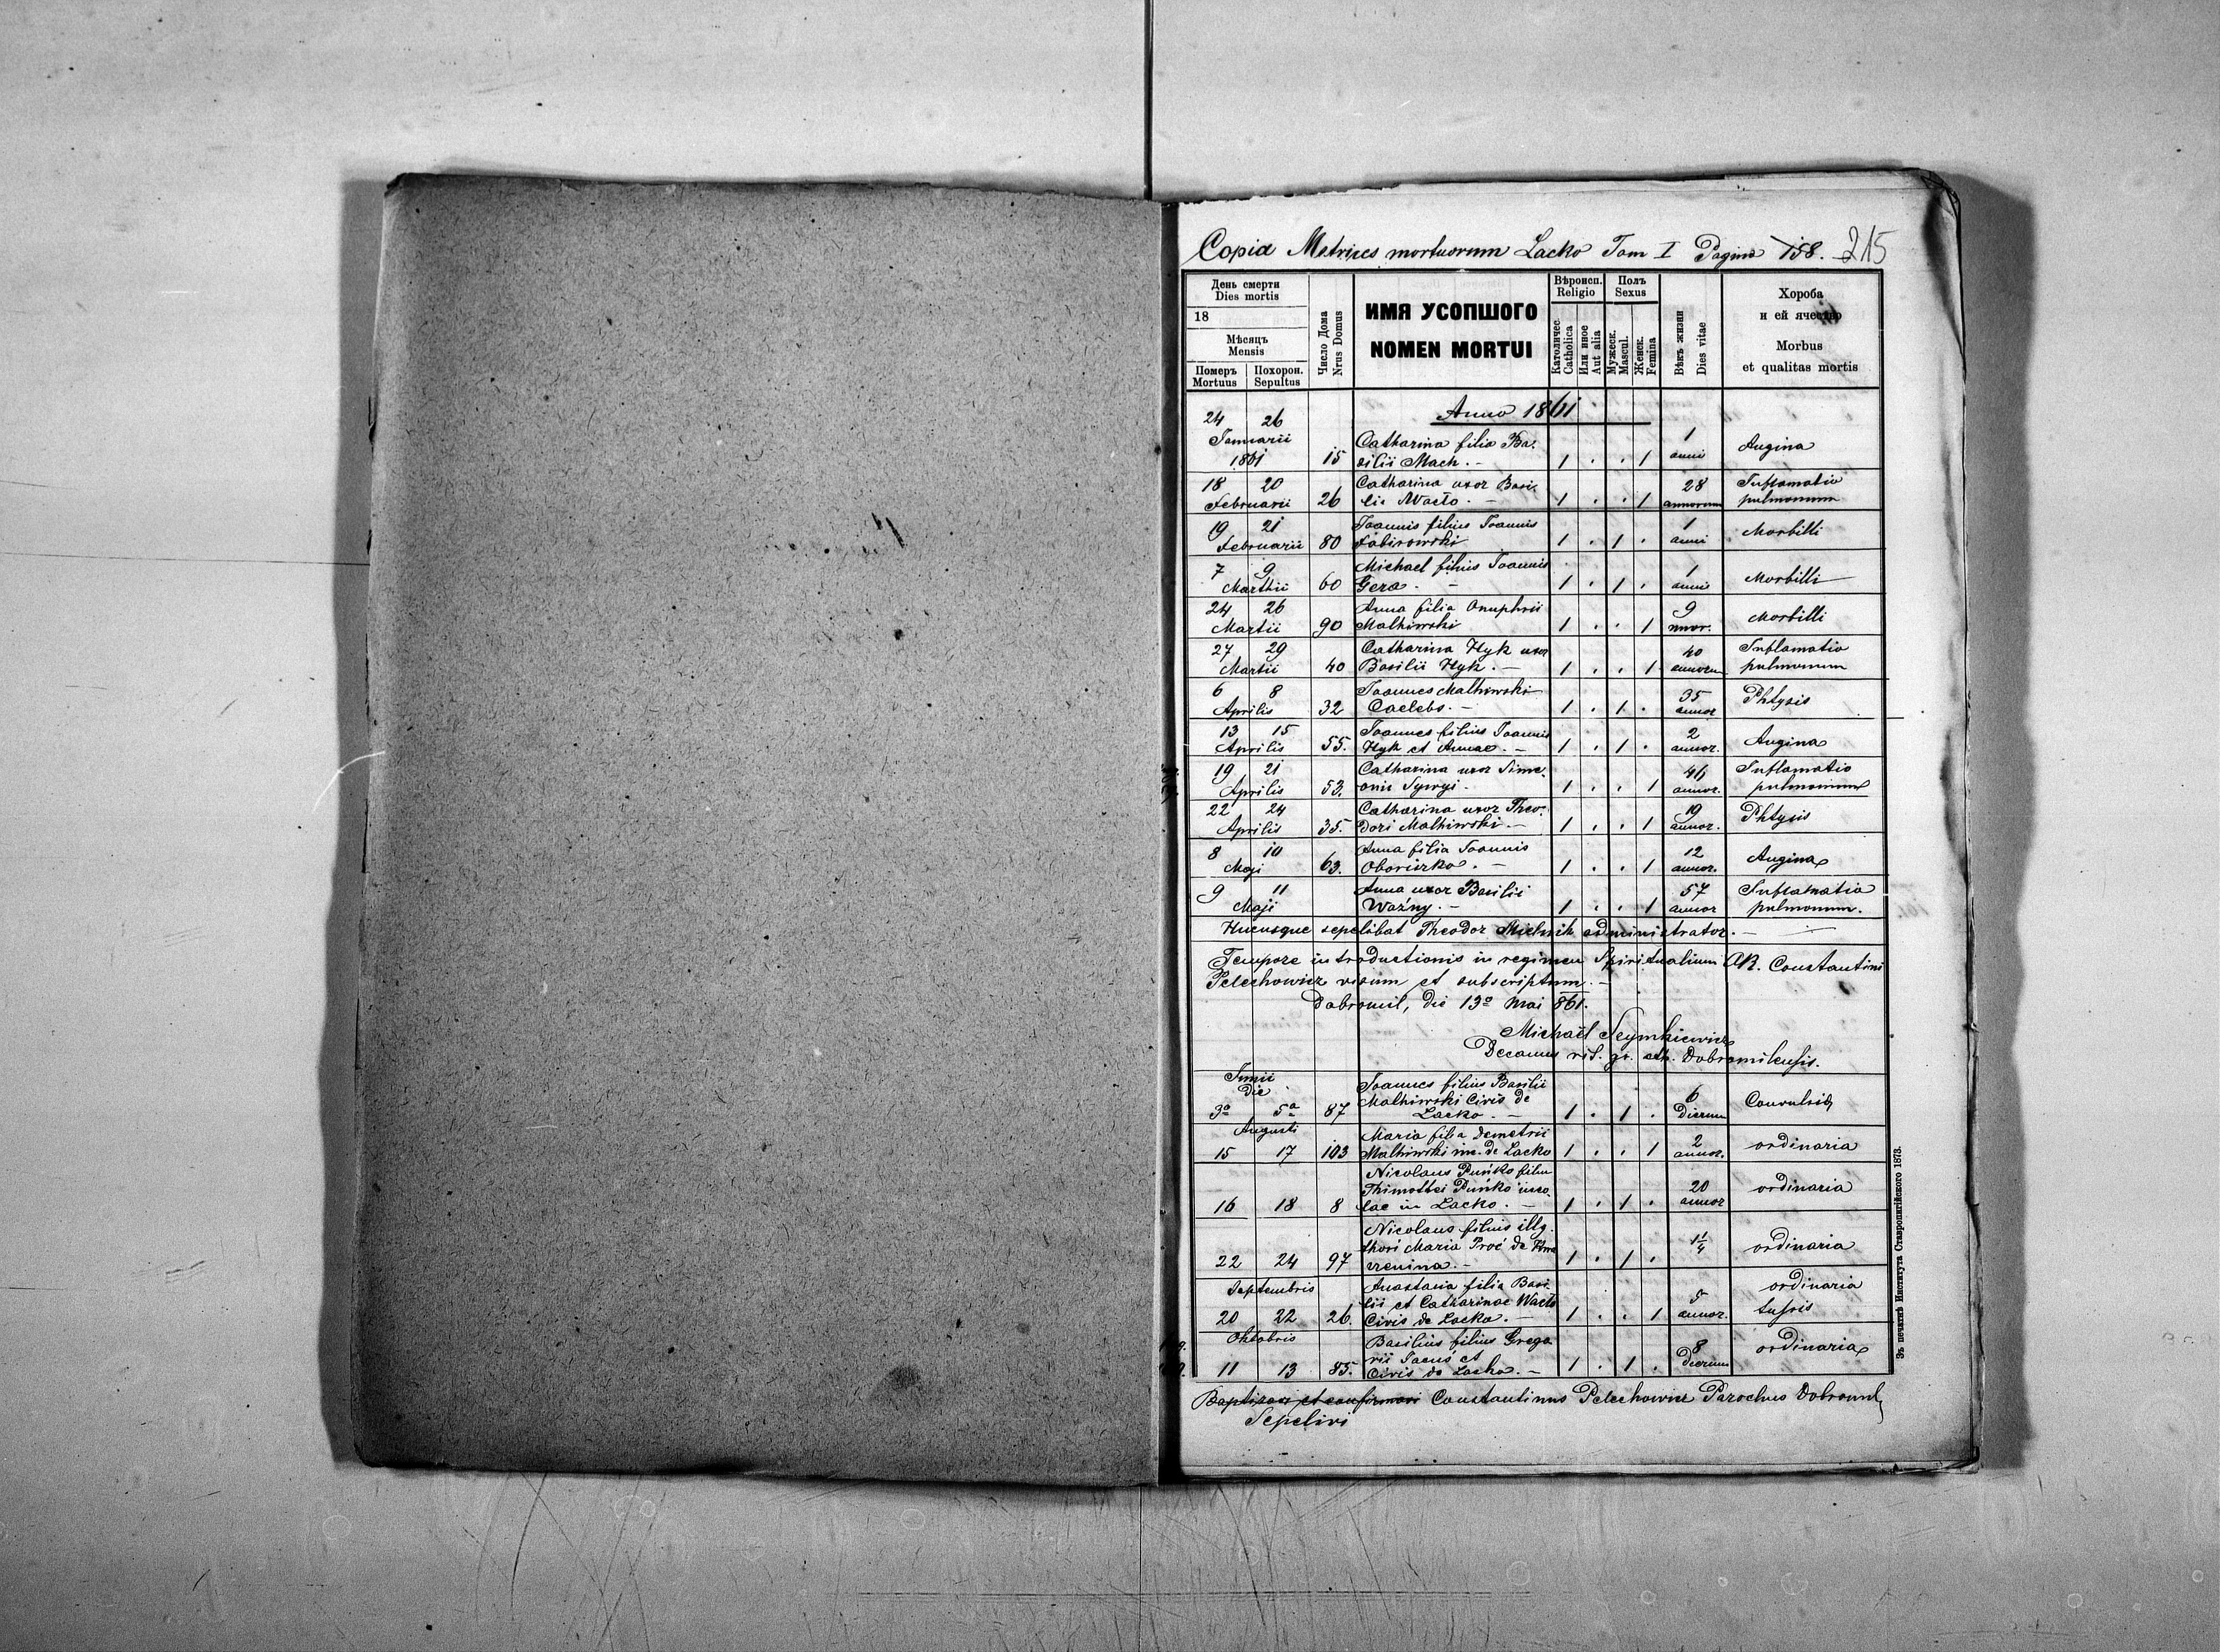 Copia Metrices mortuorum Lacko Tom I Pagina 158. 215
День смерти
Dies mortis
18
Мѣсяць
Mensis
Померъ Похорон.
Mortuus Sepultus
Число Дома
Nrus Domus
ИМЯ УСОПШОГО
NOMEN MORTUI
Вѣроисп.
Religio
Католичес.
Catholica
Или иное
Aut alia
Полъ
Sexus
Мужеск.
Mascul.
Женск.
Femina
Вѣкъ жизни
Dies vitae
Хороба
и ей ячество
Morbus
et qualitas mortis
Anno 1861
24 26
Januarii Catharina filia Ba- 1 Angina
1861 15 silii Mach. - 1 . . 1 anni
18 20 Catharina uxor Basi- 28 Inflamatio
Februarii 26 lii Wacto - 1 . . 1 annorum pulmonum
19 21 Joannis filius Joannis 1 Morbilli
Februarii 80 Fabirowski 1 . 1 . anni
7 9 Michael filius Joannis 1 Morbilli
Marthii 60 Gera - 1 . 1 . anni
24 26 Anna filia Onuphrii 9 Morbilli
Martii 90 Malhiwski 1 . . 1 annor.
27 29 Catharina Hyk uxor 40 Inflamatio
Martii 40 Basilii Hyk. - 1 . . 1 annoru pulmonum
6 8 Joannes Malhiwski 35 Phtysis
Aprilis 32 Caelebs. - 1 . 1 . annor
13 15 Joannes filius Joannis 2 Angina
Aprilis 55. Hyk et Annae. - 1 . 1 . annor.
19 21 Catharina uxor Sime- 46 Inflamatio
Aprilis 53. onis 1 . . 1 annor. pulmonum
22 24 Catharina uxor Theo- 19 Phtysis
Aprilis 35. dori Malhiwski. - 1 . . 1 annor.
8 10 Anna filia Joannis 12 Angina
Maji 63. 1 . . 1 annor.
9 11 Anna uxor Basilii 57 Inflamatio
Maji Woźny. - 1 . . 1 annor pulmonum.
Hucusque sepelibat Theodor Mielnik administrator. -
Tempore introductionis in regimen Spiritualium AR. Constantini
Pelechowicz visum et subscriptum. -
Dobromil, die 13º Mai 861.
Michaël
Decanus rit. gr. cth. Dobromilensis.
Junii
die Joannes filius Basilii 6 Convulsio
3ª 5ª 87 Malhiwski Civis de 1 . 1 . Dierum
Lacko. -
Augusti Maria filia Demetrii 2 ordinaria
15 17 103 Malhiwski inc. de Lacko 1 . . 1 annor.
Nicolaus Puńko filiu
Thimothei Puńko inco- 20 ordinaria
16 18 8 lae in Lacko. - 1 . 1 . annor
Nicolaus filius illg. 1¼ ordinaria
thori Maria Proć de
22 24 97 1 . 1 .
Septembris Anastasia filia Basi- ordinaria
lii et Catharinae Wacto 5 tussis
20 22 26. Civis de Lacko. - 1 . . 1 annor.
Oktobris Basilius filius Grego- 8 ordinaria
rii et
11 13 85. Civis de Lacko. - 1 . 1 . Dierum
Baptisavi et confirmavi Constantinus Pelechowicz Parochus Dobromil
Sepelivi
Зъ печатнѣ Института Ставропигійского 1873.